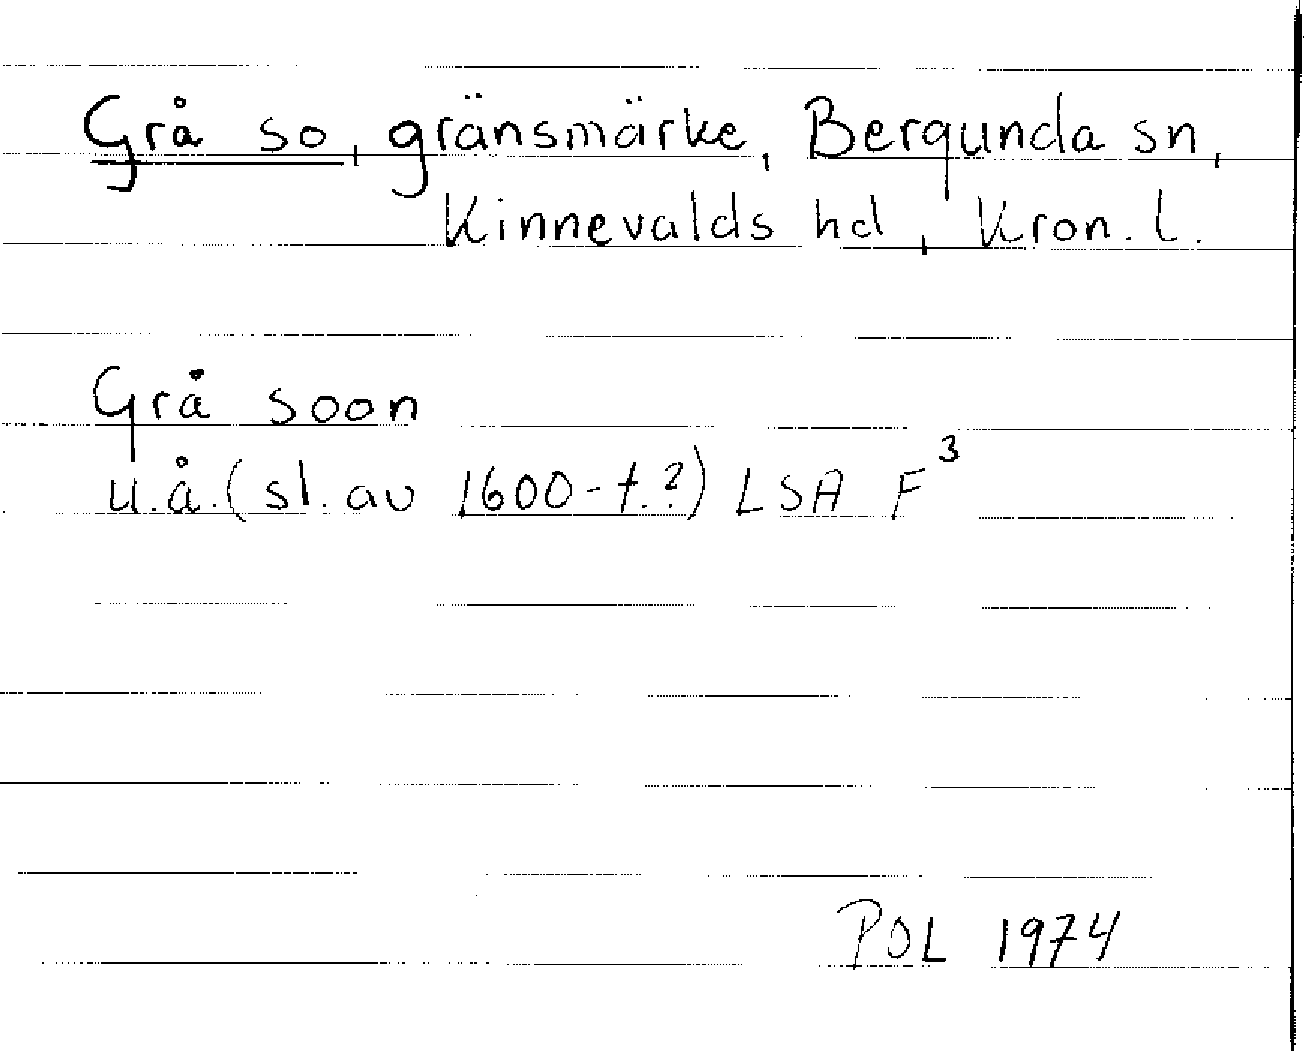 Grå so, gränsmärke, Bergunda sn,
Kinnevalds hd, Kron. l.
Grå soon
u.å. (sl. av 1600-t.?) LSA F³
POL 1974